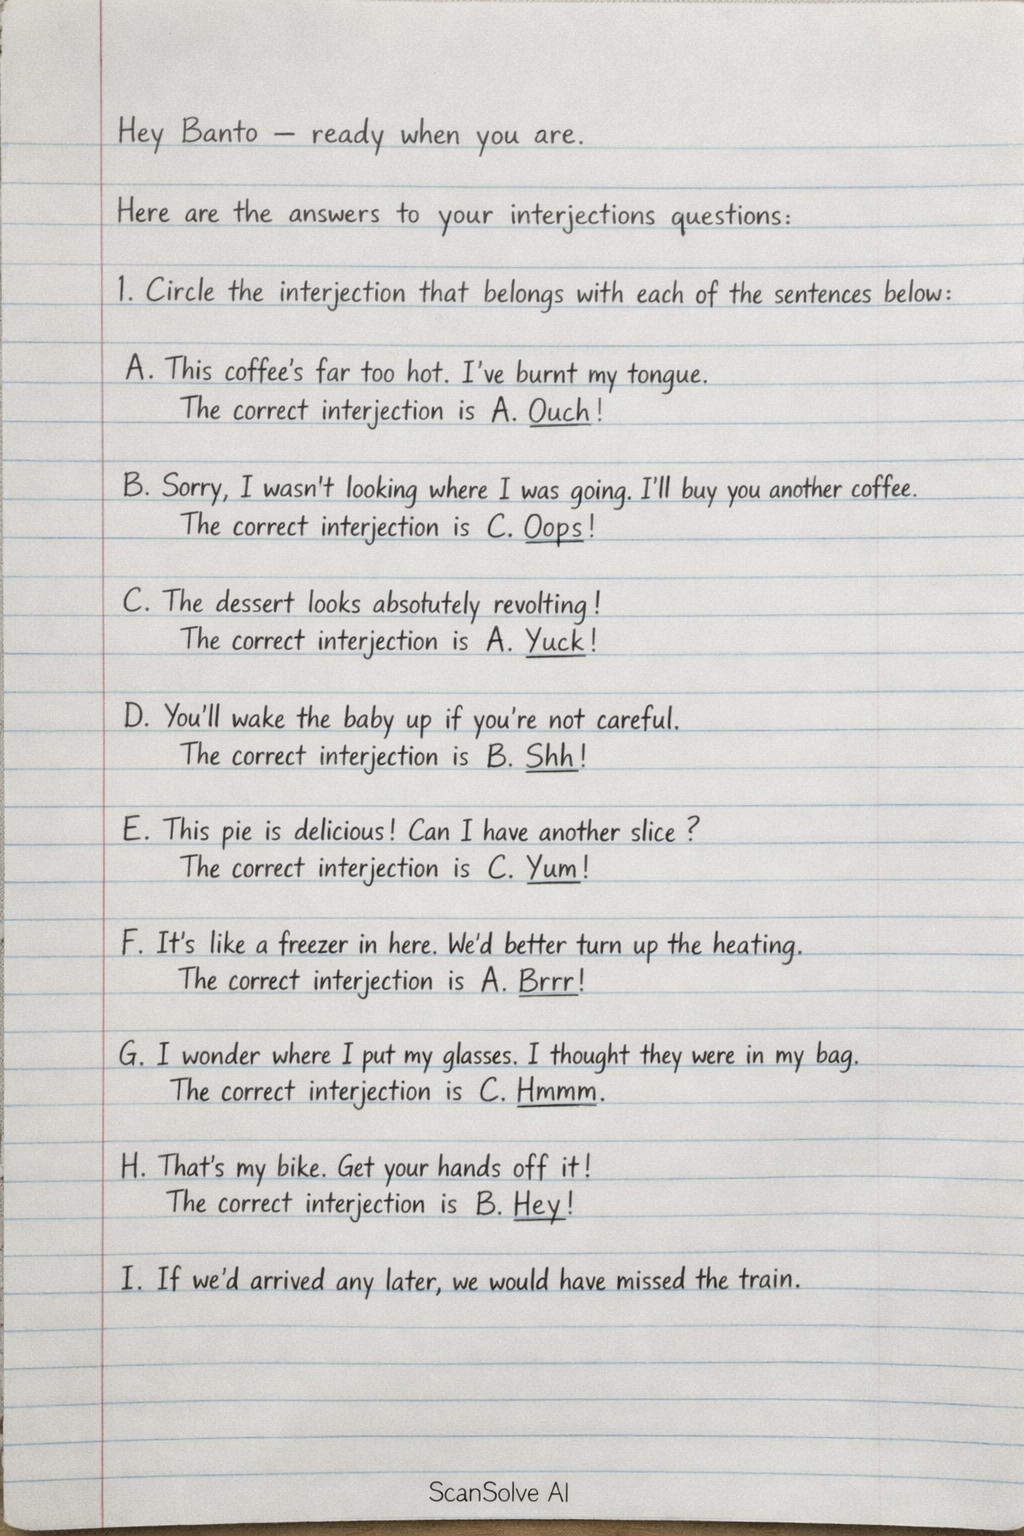 Hey Banto — ready when you are.
Here are the answers to your interjections questions:
1. Circle the interjection that belongs with each of the sentences below:
A. This coffee's far too hot. I've burnt my tongue.
The correct interjection is A. Ouch!
B. Sorry, I wasn't looking where I was going. I'll buy you another coffee.
The correct interjection is C. Oops!
C. The dessert looks absotutely revolting!
The correct interjection is A. Yuck!
D. You'll wake the baby up if you're not careful.
The correct interjection is B. Shh!
E. This pie is delicious! Can I have another slice?
The correct interjection is C. Yum!
F. It's like a freezer in here. We'd better turn up the heating.
The correct interjection is A. Brrr!
G. I wonder where I put my glasses. I thought they were in my bag.
The correct interjection is C. Hmmm.
H. That's my bike. Get your hands off it!
The correct interjection is B. Hey!
I. If we'd arrived any later, we would have missed the train.
ScanSolve AI